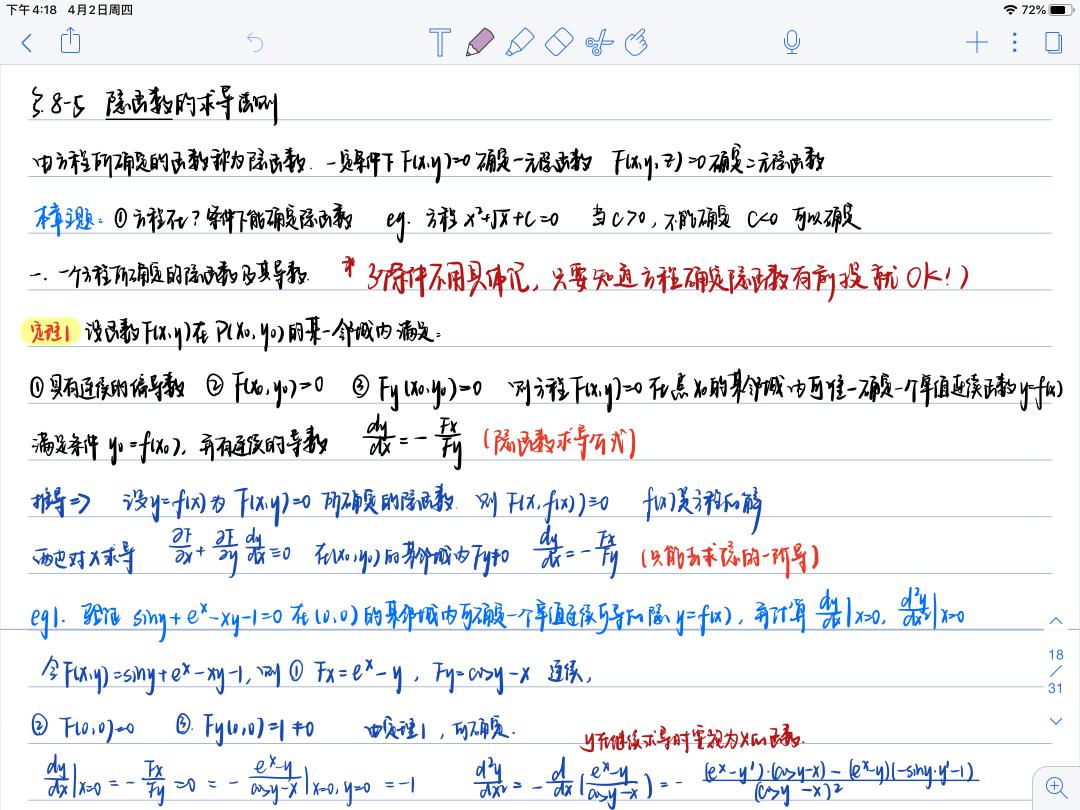 下午4:18 4月2日周四 72%
§.8-5 隐函数的求导法则
由方程所确定的函数称为隐函数. 一定条件下 F(x,y)=0 确定一元隐函数 F(x,y,z)=0 确定二元隐函数
本章主题: ① 方程在?条件下能确定隐函数 eg. 方程 x²+√x+c=0 当 c>0, 不能确定 c<0 可以确定
一. 一个方程所确定的隐函数及其导数. * 3条件不用具体记, 只要知道方程确定隐函数有前提就OK!)
定理1 设函数F(x,y)在 P(x₀,y₀)的某一邻域内满足:
①具有连续的偏导数 ② F(x₀,y₀)=0 ③ Fy(x₀,y₀)=0 则方程F(x,y)=0 在点x₀的某邻域内可唯一确定一个单值连续函数y=f(x)
满足条件 y₀=f(x₀), 并有连续的导数 dy/dx = - Fx/Fy (隐函数求导公式)
推导=> 设y=f(x)为 F(x,y)=0 所确定的隐函数. 则 F(x,f(x))≡0 f(x)是方程的解
两边对x求导 ∂F/∂x + ∂F/∂y dy/dx =0 在(x₀,y₀)的某邻域内Fy≠0 dy/dx = - Fx/Fy (只能去求隐的一阶导)
eg1. 验证 siny+eˣ-xy-1=0 在(0,0)的某邻域内可确定一个单值连续可导的隐 y=f(x), 并计算 dy/dx|x=0, d²y/dx²|x=0
令F(x,y)=siny+eˣ-xy-1, 则 ① Fx=eˣ-y, Fy=cosy-x 连续,
18
/
31
② F(0,0)=0 ③. Fy(0,0)=1≠0 由定理1, 可确定.
y在继续求导时要视为x的函数.
dy/dx|x=0 = - Fx/Fy =0 = - (eˣ-y)/(cosy-x)|x=0,y=0 = -1 d²y/dx² = - d/dx((eˣ-y)/(cosy-x)) = - ((eˣ-y')·(cosy-x)-(eˣ-y)(-siny·y'-1))/(cosy-x)²